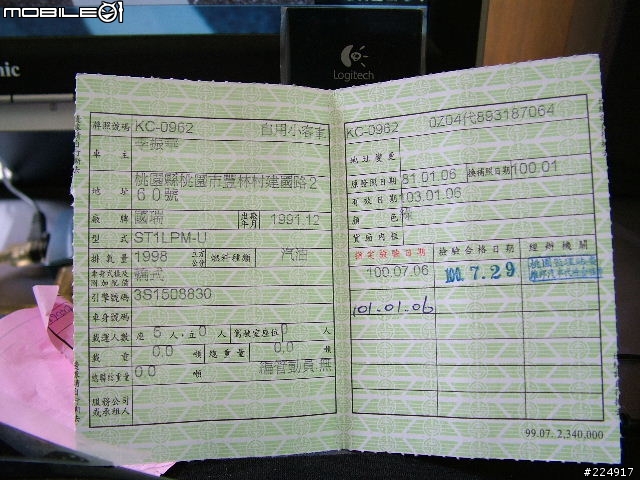 MOBILE01
Logitech
牌照號碼 KC-0962 自用小客車
車主 李振華
地址 桃園縣桃園市豐林村建國路2
60號
廠牌 國瑞 出廠年月 1991.12
型式 ST1LPM-U
排氣量 1998 立方公分 燃料種類 汽油
車身式樣及附加配備 轎式
引擎號碼 3S1508830
車身號碼
載運人數 座 5 人,立 0 人 駕駛室座位 0 人
載重 0.0 噸 總重量 0.0 噸
總聯結重量 0.0 噸 編管動員:無
服務公司或承租人
KC-0962 0Z04代893187064
地址變更
原發照日期 81.01.06 換補照日期 100.01
有效日期 103.01.06
顏色 綠
貨廂內框
指定檢驗日期 檢驗合格日期 經辦機關
100.07.06 100.7.29
101.01.06
99.07. 2,340,000
#224917